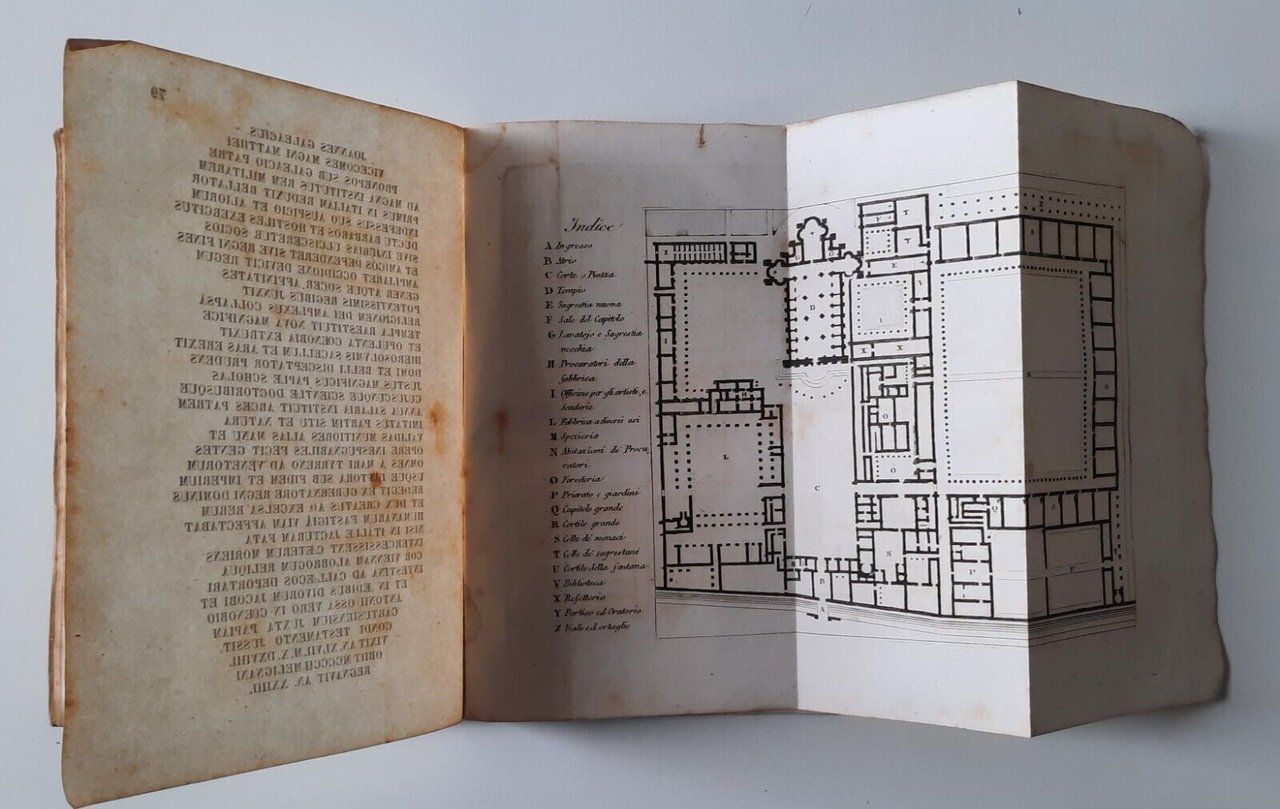 79
JOANNES GALEACIUS
VICECOMES MAGNI MATTHEI
PRONEPOS SUB GALEACIO PATRE
AD MAGNA INSTITUTUS REM MILITAREM
PRIMUS IN ITALIAM REDUXIT BELLATOR
INDEFESSUS SUO AUSPICIO ET ALIORUM
DUCTU BARBAROS ET HOSTILES EXERCITUS
SIVE INJURIAS ULCISCERETUR SOCIOS
ET AMICOS DEFENDERET SIVE REGNI FINES
AMPLIARET OCCIDIONE DEVICIT REGUM
GENER ATQUE SOCER, AFFINITATES
POTENTISSIMIS REGIBUS JUNXIT
RELIGIONEM DEI AMPLEXUS COLLAPSA
TEMPLA RAESTITUIT NOVA MAGNIFICE
ET OPULENTA CŒNOBIA EXTRUXIT
HIEROSOLYMIS SACELLUM ET ARAS EREXIT
DOMI ET BELLI DISCEPTATOR PRUDENS
JUSTUS MAGNIFICUS PAPIÆ SCHOLAS
CUJUSCUNQUE SCIENTIÆ DOCTORIBUSQUE
ANNUA SALARIA INSTITUIT ARCES PATREM
IMITATUS PARTIM SITU ET NATURA
VALIDAS MUNITIONES ALIAS MANU ET
OPERE INEXPUGNABILES FECIT GENTES
OMNES A MARI TYRRENO AD VENETORUM
USQUE LITTORA SUB FIDEM ET IMPERIUM
REDEGIT EX GUBERNATORE REGNI DOMINUS
ET DUX CREATUS AD EXCELSA RERUM
HUMANARUM FASTIGIA VIAM AFFECTABAT
NISI IN ITALIÆ JACTURAM FATA
INTERCESSISSENT CÆTERUM MORIENS
COR VIENNAM ALOBROGUM RELIQUA
INTESTINA AD CALLÆCOS DEPORTARI
ET IN ÆDIBUS DIVORUM JACOBI ET
ANTONII OSSA VERO IN CŒNOBIO
CARTUSIENSIUM JUXTA PAPIAM
CONDI TESTAMENTO JUSSIT.
VIXIT AN. XLVII. M. X. DXVIII.
OBIIT MCCCCII MELIGNANI
REGNAVIT AN. XXIIII.
Indice
A Ingresso
B Atrio
C Corte o Piazza
D Tempio
E Sagrestia nuova
F Sale del Capitolo
G Lavatojo e Sagrestia
vecchia
H Procuratori della
fabbrica
I Officine per gli artisti, e
Scuderie
L Fabbrica a diversi usi
M Spezieria
N Abitazioni de' Procu
ratori
O Foresteria
P Priorato e giardini
Q Capitolo grande
R Cortile grande
S Celle de' monaci
T Celle de' sagrestani
U Cortile della fontana
V Biblioteca
X Refettorio
Y Portico ed Oratorio
Z Viali ed ortaglie
F
T
T
E
D
X
X
O
L
C
O
Q
N
P
P
B
A